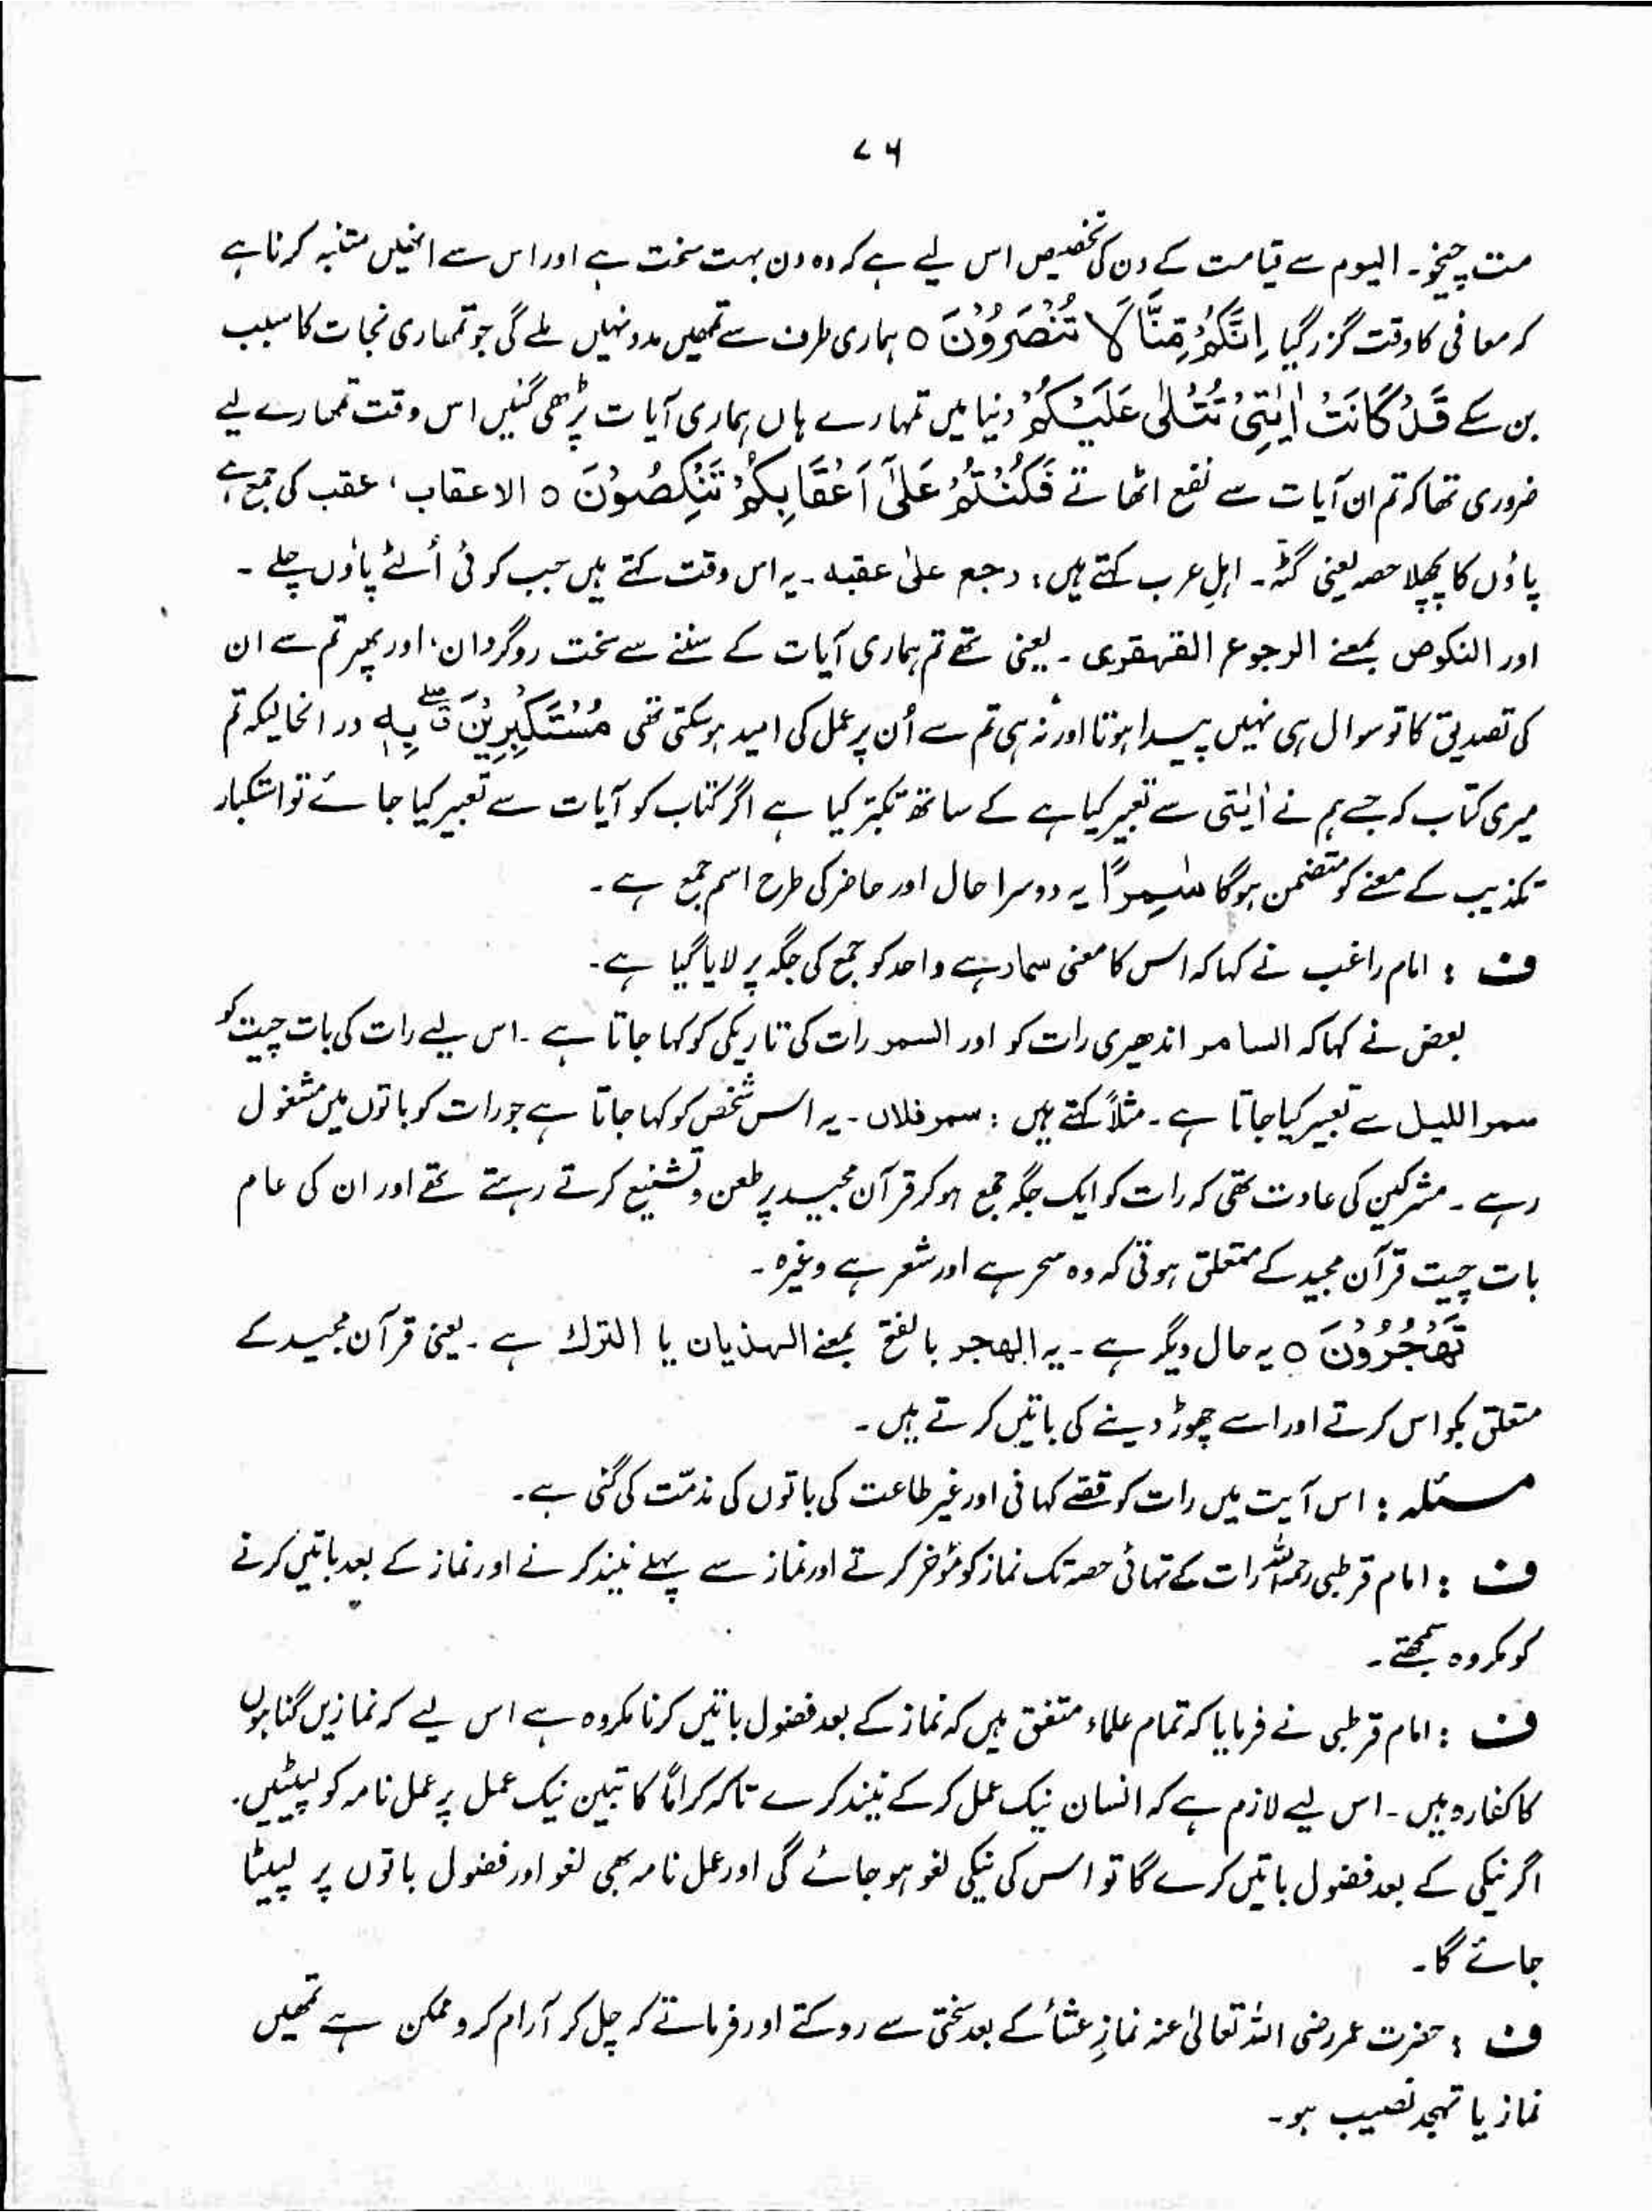 ۷۶
مت چیخو۔ الیوم سے قیامت کے دن کی تخصیص اس لیے ہے کہ وہ دن بہت سخت ہے اور اس سے انھیں متنبہ کرنا ہے
کہ معافی کا وقت گزر گیا۔ اِنَّكُمْ مِّنَّا لَا تُنْصَرُوْنَ ۝ ہماری طرف سے تمھیں مدد نہیں ملے گی جو تمھاری نجات کا سبب
بن سکے قَدْ كَانَتْ اٰيٰتِىْ تُتْلٰى عَلَيْكُمْ دنیا میں تمہارے ہاں ہماری آیات پڑھی گئیں اس وقت تمھارے لیے
ضروری تھا کہ تم ان آیات سے نفع اٹھاتے فَكُنْتُمْ عَلٰٓى اَعْقَابِكُمْ تَنْكِصُوْنَ ۝ الاعقاب، عقب کی جمع ہے
پاؤں کا پچھلا حصہ یعنی گٹہ۔ اہلِ عرب کہتے ہیں : رجع علیٰ عقبہ۔ یہ اس وقت کہتے ہیں جب کوئی اُلٹے پاؤں چلے ۔
اور النکوص بمعنے الرجوع القہقری ۔ یعنی تھے تم ہماری آیات کے سننے سے سخت روگردان، اور پھر تم سے ان
کی تصدیق کا تو سوال ہی نہیں پیدا ہوتا اور نہ ہی تم سے اُن پر عمل کی امید ہوسکتی تھی مُسْتَكْبِرِيْنَ ۖ بِهٖ در انحالیکہ تم
میری کتاب کہ جسے ہم نے اٰیٰتی سے تعبیر کیا ہے کے ساتھ تکبّر کیا ہے اگر کتاب کو آیات سے تعبیر کیا جائے تو استکبار
تکذیب کے معنے کو متضمن ہوگا سٰمِرًا یہ دوسرا حال اور حاضر کی طرح اسم جمع ہے ۔
ف : امام راغب نے کہا کہ اس کا معنی سمار ہے واحد کو جمع کی جگہ پر لایا گیا ہے۔
بعض نے کہا کہ السامر اندھیری رات کو اور السمر رات کی تاریکی کو کہا جاتا ہے ۔ اس لیے رات کی بات چیت کو
سمر اللیل سے تعبیر کیا جاتا ہے ۔ مثلاً کہتے ہیں : سمر فلان ۔ یہ اس شخص کو کہا جاتا ہے جو رات کو باتوں میں مشغول
رہے ۔ مشرکین کی عادت تھی کہ رات کو ایک جگہ جمع ہو کر قرآن مجید پر طعن و تشنیع کرتے رہتے تھے اور ان کی عام
بات چیت قرآن مجید کے متعلق ہوتی کہ وہ سحر ہے اور شعر ہے وغیرہ ۔
تَهْجُرُوْنَ ۝ یہ حال دیگر ہے ۔ یہ الھجر بالفتح بمعنے الہذیان یا الترک ہے ۔ یعنی قرآن مجید کے
متعلق بکواس کرتے اور اسے چھوڑ دینے کی باتیں کرتے ہیں ۔
مسئلہ : اس آیت میں رات کو قصّے کہانی اور غیر طاعت کی باتوں کی مذمّت کی گئی ہے ۔
ف : امام قرطبی رحمہ اللہ رات کے تہائی حصہ تک نماز کو مؤخر کرتے اور نماز سے پہلے نیند کرنے اور نماز کے بعد باتیں کرنے
کو مکروہ سمجھتے ۔
ف : امام قرطبی نے فرمایا کہ تمام علماء متفق ہیں کہ نماز کے بعد فضول باتیں کرنا مکروہ ہے اس لیے کہ نمازیں گناہوں
کا کفارہ ہیں ۔ اس لیے لازم ہے کہ انسان نیک عمل کر کے نیند کرے تاکہ کراماً کاتبین نیک عمل پر عمل نامہ کو لپیٹیں۔
اگر نیکی کے بعد فضول باتیں کرے گا تو اس کی نیکی لغو ہو جائے گی اور عمل نامہ بھی لغو اور فضول باتوں پر لپیٹا
جائے گا ۔
ف : حضرت عمر رضی اللہ تعالیٰ عنہ نمازِ عشأ کے بعد سختی سے روکتے اور فرماتے کہ چل کر آرام کرو ممکن ہے تمھیں
نماز یا تہجد نصیب ہو ۔